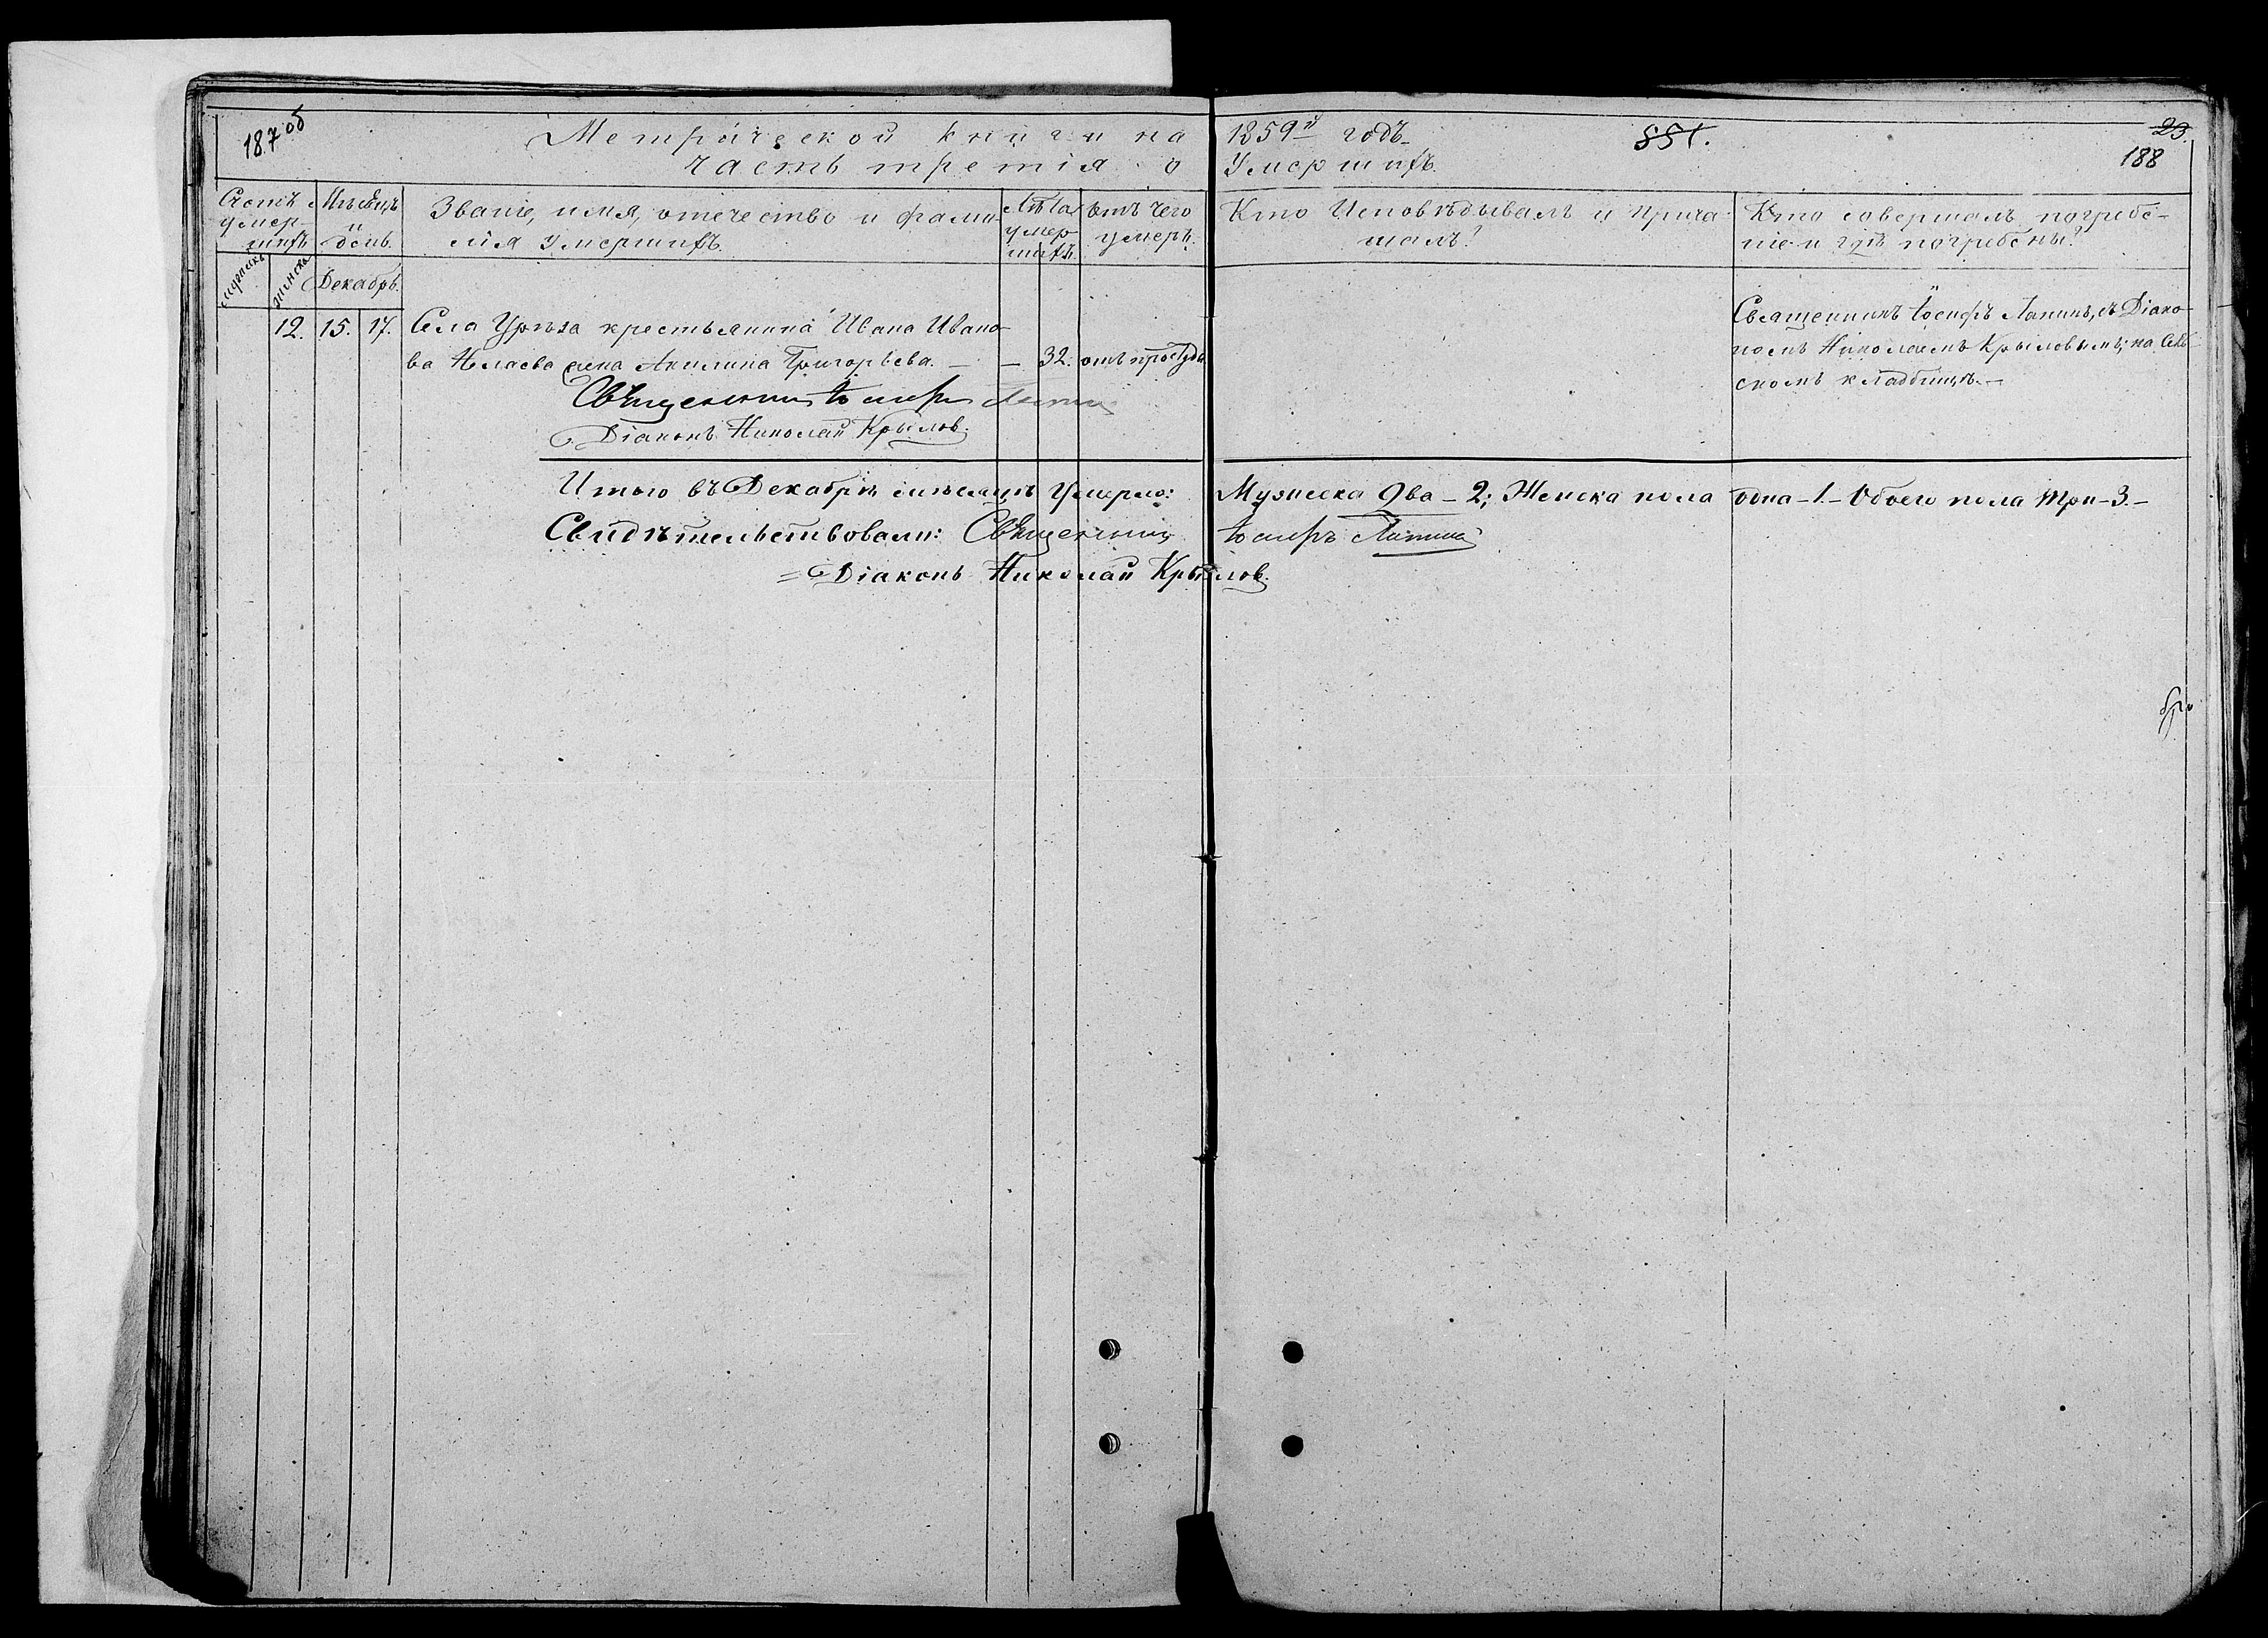 187 об
Метрической книги на 1859й годъ
881.
23.
188
часть третія о умершихъ.
Счетъ умер-
шихъ
Мѣсяцъ
и
день.
Званіе, имя, отечество и фами-
лія умершихъ.
Лѣта
умер-
шихъ.
Отъ чего
умеръ.
Кто исповѣдывалъ и прича-
щалъ?
Кто совершалъ погребе-
ніе и гдѣ погребены?
мужеска
женска
Декабрь.
12. 15. 17. Села Урѣза крестьянина Ивана Ивано-
ва жена Акилина Григорьева. — — 32. отъ простуды
Священникъ Іосифъ Лапинъ, съ Діако-
номъ Николаемъ Крыловымъ; на Сель-
скомъ кладбищѣ.—
Священникъ Іосифъ Лапинъ
Діаконъ Николай Крылов.
Итого въ Декабрѣ мѣсяцѣ умерло: Мужеска два – 2; Женска пола одна – 1. – Обоего пола три – 3. –
Свидѣтельствовали: Священникъ Іосифъ Лапинъ
= Діаконъ Николай Крылов.